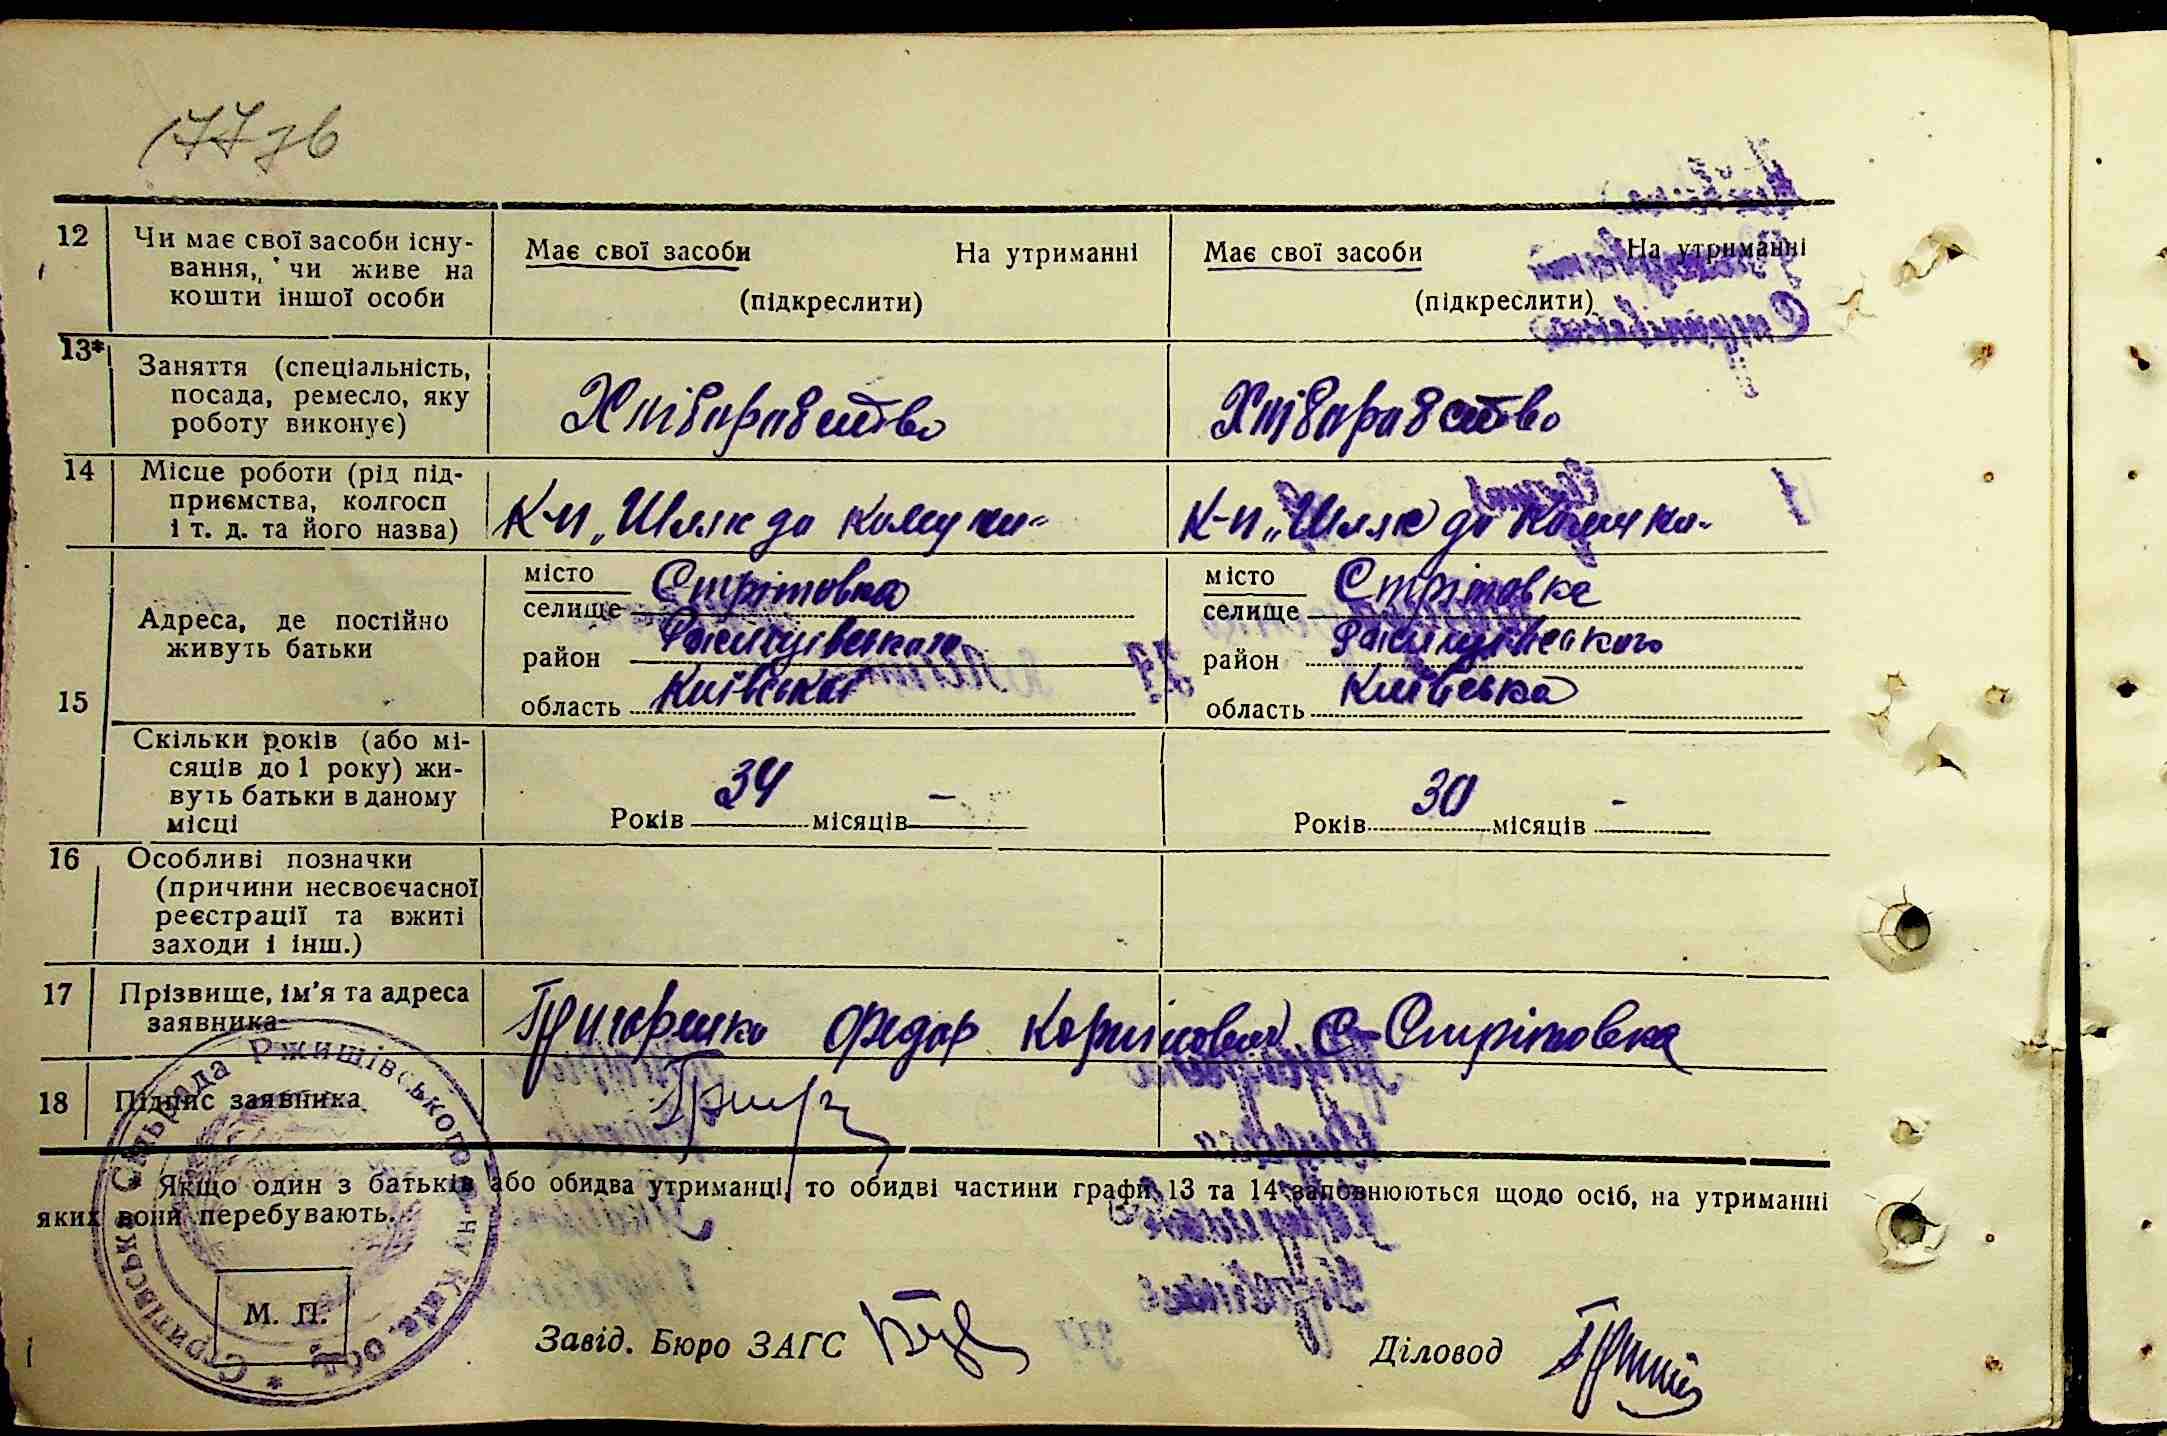 177 зв
12 Чи має свої засоби існування, чи живе на кошти іншої особи
Має свої засоби На утриманні
(підкреслити)
Має свої засоби На утриманні
(підкреслити)
13* Заняття (спеціальність,
посада, ремесло, яку
роботу виконує)
Хліборобство
Хліборобство
14 Місце роботи (рід під-
приємства, колгосп
і т. д. та його назва)
К-п „Шлях до комуни"
К-п „Шлях до комуни"
15
Адреса, де постійно
живуть батьки
місто
селище Стрітовка
район
область Київська
місто
селище Стрітовка
район
область Київська
Скільки років (або мі-
сяців до 1 року) жи-
вуть батьки в даному
місці
Років 34 місяців –
Років 30 місяців –
16 Особливі позначки
(причини несвоєчасної
реєстрації та вжиті
заходи і інш.)
17 Прізвище, ім'я та адреса
заявника
Григоренко Федор С-Стрітовка
18 Підпис заявника
* Якщо один з батьків або обидва утриманці, то обидві частини графи 13 та 14 заповнюються щодо осіб, на утриманні
яких вони перебувають.
М. П.
Завід. Бюро ЗАГС
Діловод
Стритівська Сільрада Ржищівського р-ну Київ. обл.